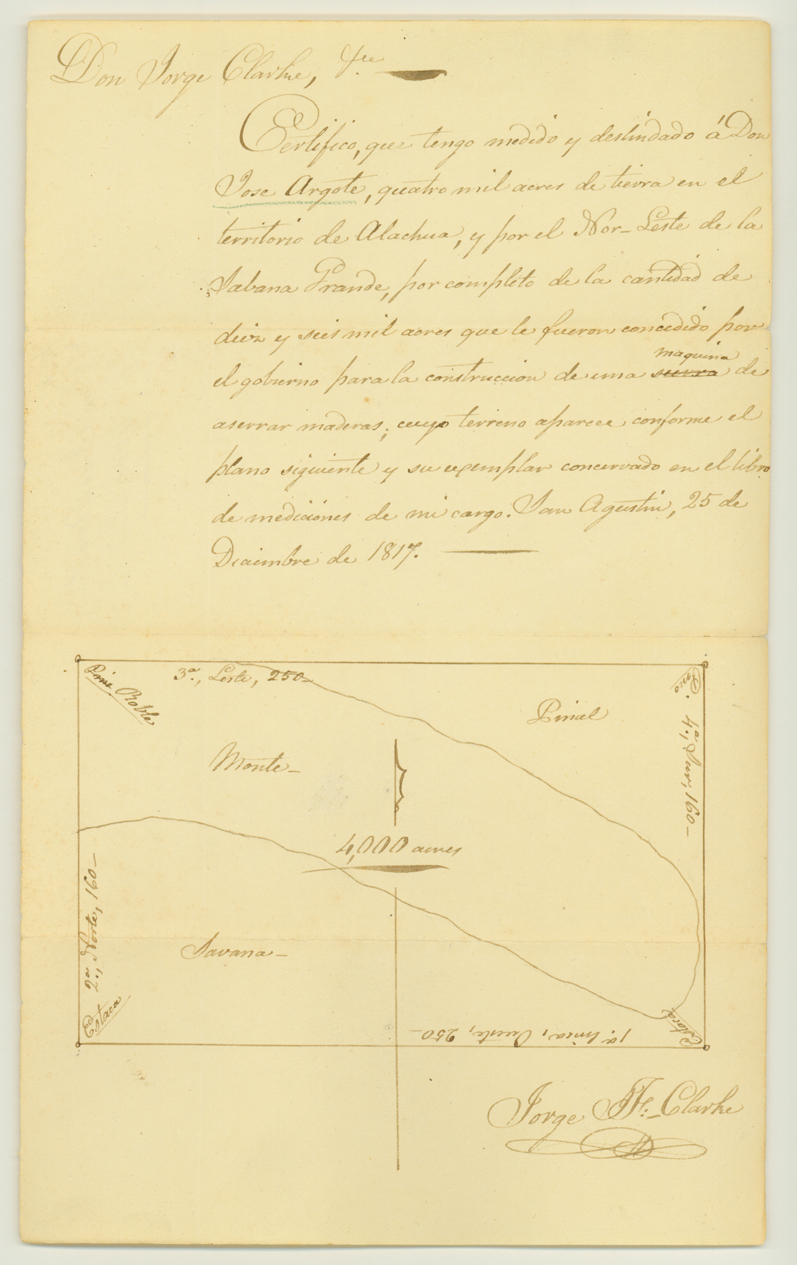 Don Jorge Clarke, &ce
Certifico, que tengo medido y deslindado á Don
Jose Argote, quatro mil acres de tierra en el
territorio de Alachua, y por el Nor-Leste de la
Sabana Grande, por completo de la cantidad de
diez y seis mil acres que le fueron concedido por
el gobierno para la construccion de una maquina de
aserrar maderas; cuyo terreno aparece conforme el
plano siguiente y su exemplar concervado en el libro
de mediciónes de mi cargo. San Agustin, 25 de
Diciembre de 1817.
3a., Leste, 250-
Roble
Pinal
4a., Sur, 160-
Monte-
4,000 acres
2a., Norte, 160-
Savana-
Estaca
1a. linea, Oueste, 250-
Jorge J. F. Clarke